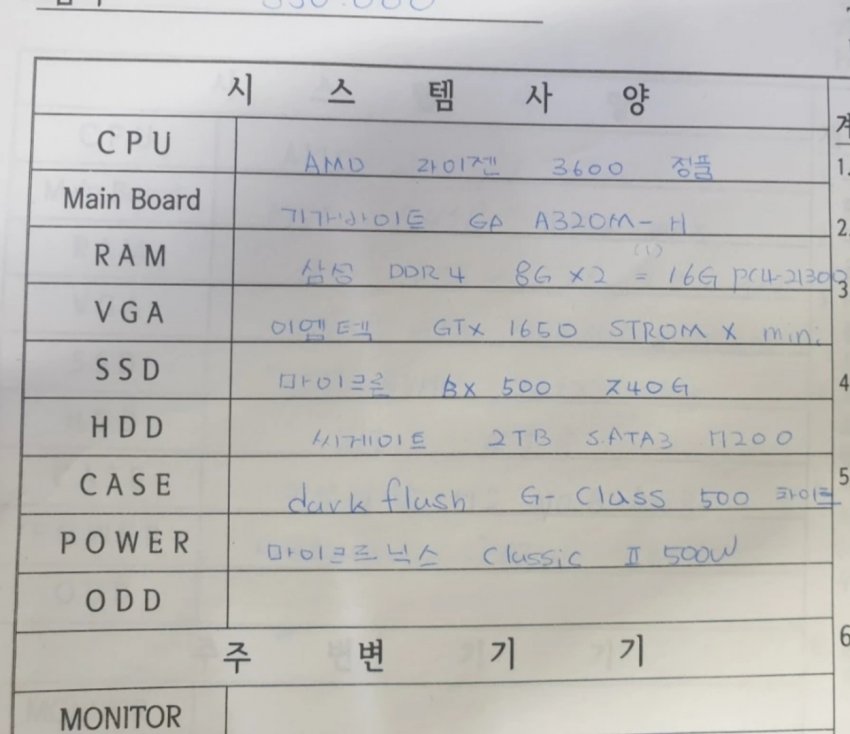 시 스 템 사 양
CPU AMD 라이젠 3600 정품
Main Board 기가바이트 GA A320M-H
(1)
RAM 삼성 DDR4 8G X2 = 16G PC4-21300
VGA 이엠텍 GTX 1650 STROM X mini
SSD 마이크론 BX 500 240G
HDD 씨게이트 2TB SATA3 7200
CASE dark flash G-Class 500
POWER 마이크로닉스 Classic II 500W
ODD
주 변 기 기
MONITOR
1.
2
3
4
5
6